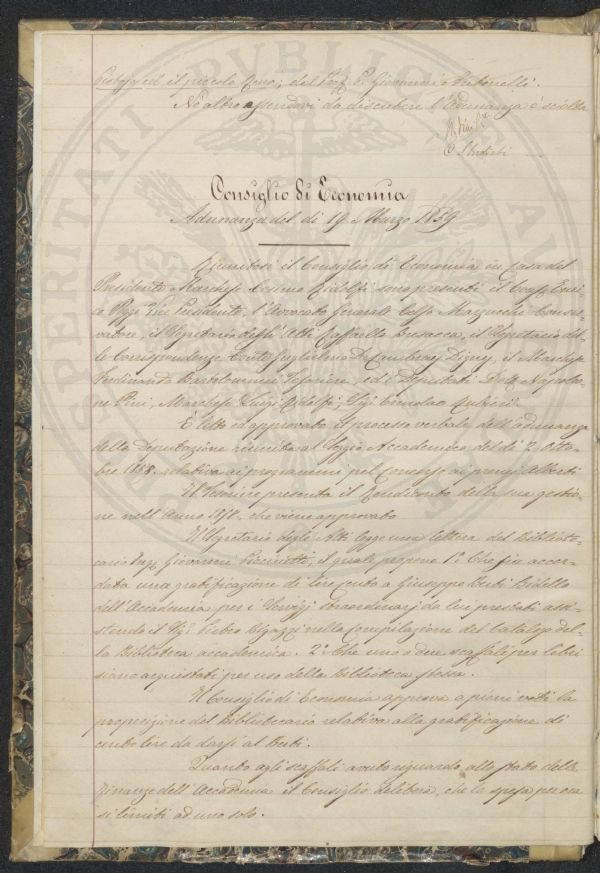 ed il piccolo del P. Giovanni Antonelli.
No altro essendovi da discutere l'Adunanza è sciolta
Consiglio di Economia
Adunanza del dì 19 Marzo 1859
Riunitosi il Consiglio di Economia in Casa del
Presidente Marchese Cosimo Ridolfi sono presenti il Enri-
co Poggi Vice Presidente, l'Avvocato Generale Celso Marzucchi Conser-
vatore, il Segretario degli Atti Raffaello Busacca, il Segretario del-
le Corrispondenze Conte Guglielmo De Cambray Digny, il Marchese
Ferdinando Bartolommei Tesoriere, ed i Deputati Napoleo-
ne Pini, Marchese Luigi Ridolfi, Sig. Ermolao Rubieri.
È letto ed approvato il processo verbale dell'adunanza
della Deputazione riunita al Seggio Accademico del dì 2 Otto-
bre 1858. relativa ai programmi pel concorso ai premj Alberti
Il Tesoriere presenta il Rendiconto della sua gestio-
ne nell'Anno 1858. che viene approvato
Il Segretario degli Atti legge una lettera del Bibliote-
cario Ing. Giovanni il quale propone 1.° Che sia accor-
data una gratificazione di lire cento a Giuseppe Berti Bidello
dell'Accademia per i servigj straordinarj da lui prestati assi-
stendo il Sig. Pietro Bigazzi nella Compilazione del Catalogo del-
la Biblioteca accademica. 2.° Che uno o due scaffali per libri
siano acquistati per uso della Biblioteca stessa.
Il Consiglio di Economia approva a pieni voti la
proposizione del Bibliotecario relativa alla gratificazione di
cento lire da darsi al Berti.
Quanto agli scaffali avuto riguardo allo stato delle
Finanze dell'Accademia il Consiglio delibera, che la spesa per ora
si limiti ad uno solo.